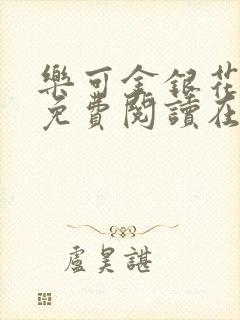 樂可金銀花
免費閱讀在
盧昊諶